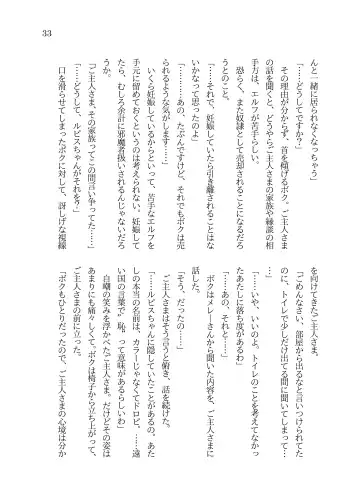 33
んと一緒に居られなくなっちゃう」
「………どうしてですか？」
その理由が分からず、首を傾げるボク。ご主人さま
の話を聞くと、どうやらご主人さまの家族や縁談の相
手方は、エルフが苦手らしい。
恐らく、また奴隷として売却されることになるだろ
うとのこと。
「………それで、妊娠していたら引き離されることはな
いかなって思ったのよ」
「………あの、たぶんですけど、それでもボクは売
られるような気がします……」
いくら妊娠しているからといって、苦手なエルフを
手元に留めておくとは思えない。むしろ、妊娠して
たら、むしろ余計に邪魔者扱いされるんじゃないだろ
うか。
「ご主人さま、その家族ってこの間言い争ってた……」
「……どうして、ルビスちゃんがそれを？」
口を滑らせてしまったボクに対して、訝しげな視線
を向けてきたご主人さま。
「ごめんなさい、部屋から出るなと言いつけられてた
のに、トイレで少しだけ出てる間に聞いてしまって…
…」
「……いや、いいのよ。トイレのことを考えてなかっ
たあたしに落ち度があるわ」
「……あの、それと……」
ボクはメレーさんから聞いた内容を、ご主人さまに
話した。
「そう、だったの……」
ご主人さまはそう言うと俯き、話を続けた。
「……ルビスちゃんに隠していたことがあるの。あた
しの本当の名前は、カラーじゃなくてドロピ。……遠
い国の言葉で『恥』って意味があるらしいわ」
自嘲の笑みを浮かべたご主人さま。だけどその姿は
あまりにも痛々しくて。ボクは椅子から立ち上がって、
ご主人さまの前に立った。
「ボクもひとりだったので、ご主人さまの心境は分か